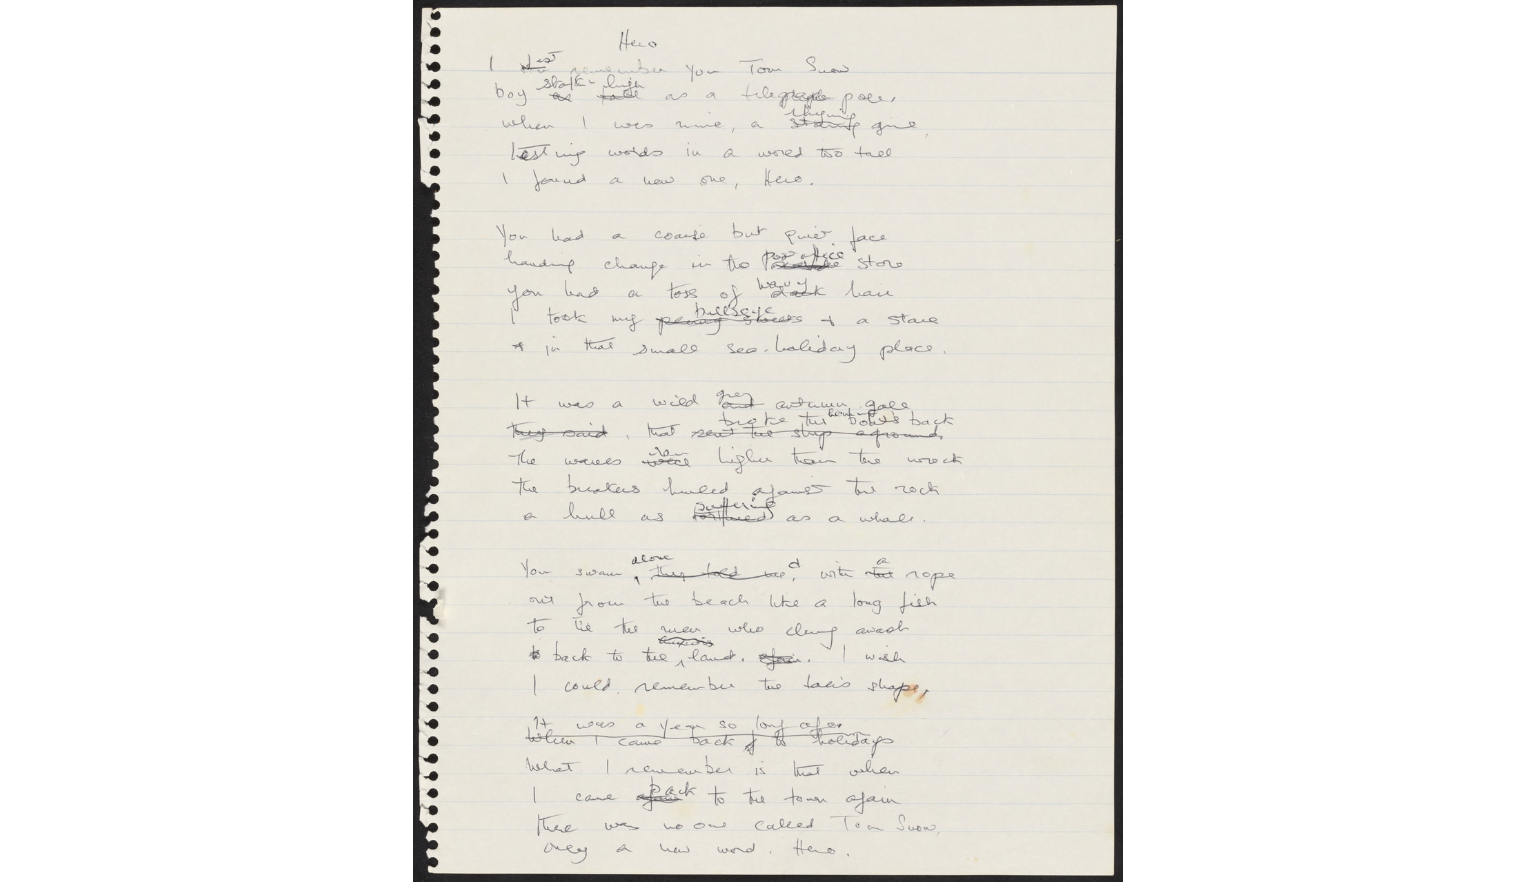 Hero
I just remember you Tom Snow
boy stalk-high as a telegraph pole,
when I was nine, a rhyming girl,
testing words in a world too tall
I found a new one, Hero.
You had a coarse but quiet face
handing change in the post office store
you had a toss of wavy hair
I took my bullseye + a stare
in that small sea-holiday place.
It was a wild grey autumn gale
that broke the boat's back
the waves higher than the wreck
the breakers hurled against the rock
a hull as suffering as a whale.
You swam alone, with a rope
out from the beach like a long fish
to tie the men who clung awash
back to the land. I wish
I could remember the tale's shape,
It was a year so long ago
When I came back to holidays
What I remember is that when
I came back to the town again
there was no one called Tom Snow,
only a new word. Hero.